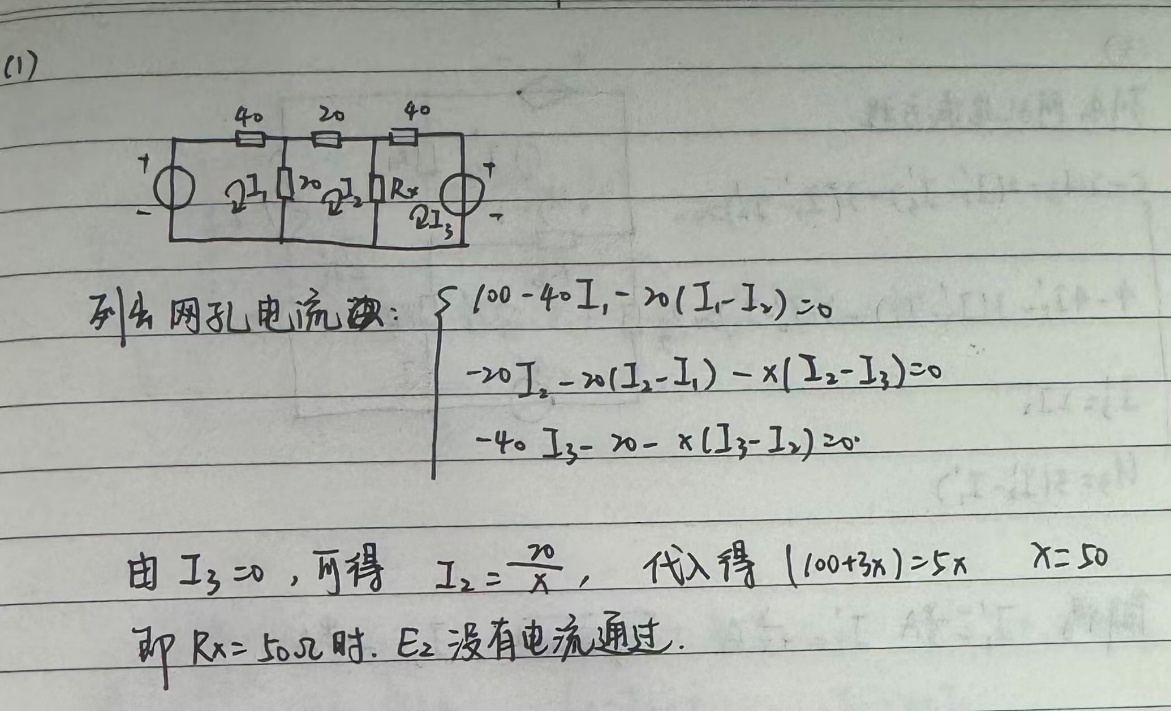 (1)
40 20 40
+ I₁ 20 I₂ Rx I₃ +
- -
列出网孔电流: 100-40I₁-20(I₁-I₂)=0
-20I₂-20(I₂-I₁)-x(I₂-I₃)=0
-40I₃-20-x(I₃-I₂)=0
由I₃=0,可得 I₂=20/x, 代入得 (100+3x)=5x x=50
即Rx=50Ω时. E₂没有电流通过.